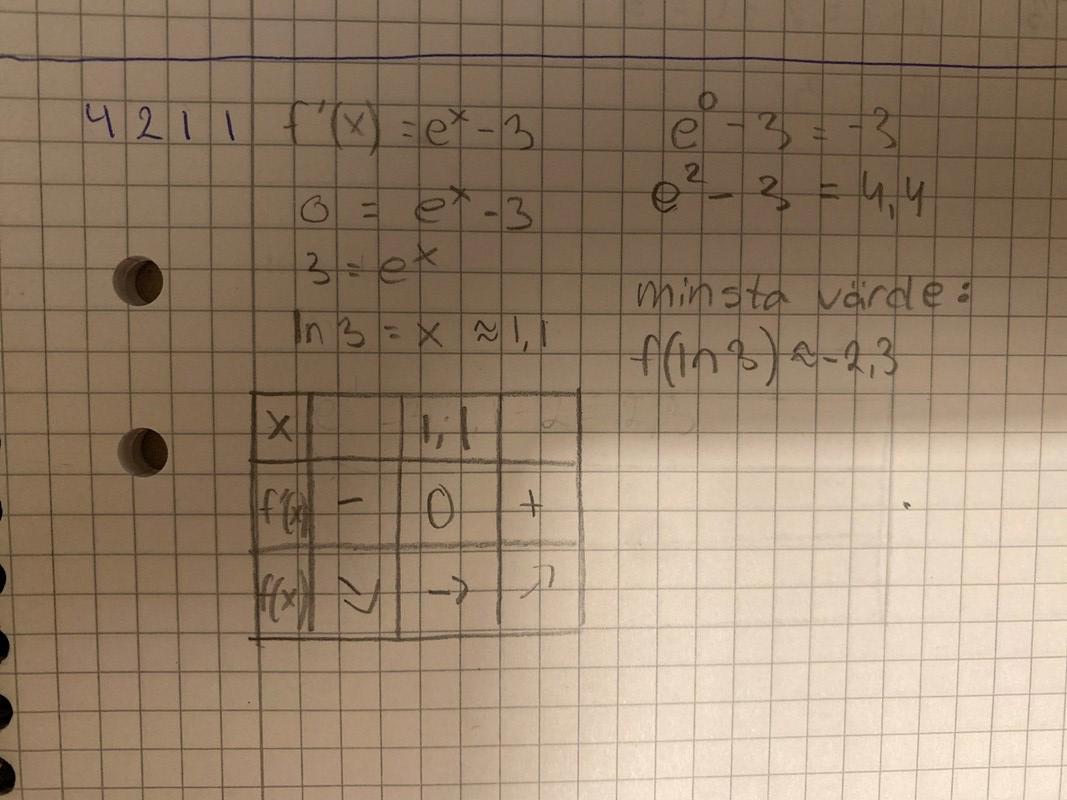 4211
f'(x) = eˣ - 3
0 = eˣ - 3
3 = eˣ
ln 3 = x ≈ 1,1
e⁰ - 3 = -3
e² - 3 = 4,4
minsta värde:
f(ln 3) ≈ -2,3
x 1,1
f'(x) - 0 +
f(x) ↘ → ↗